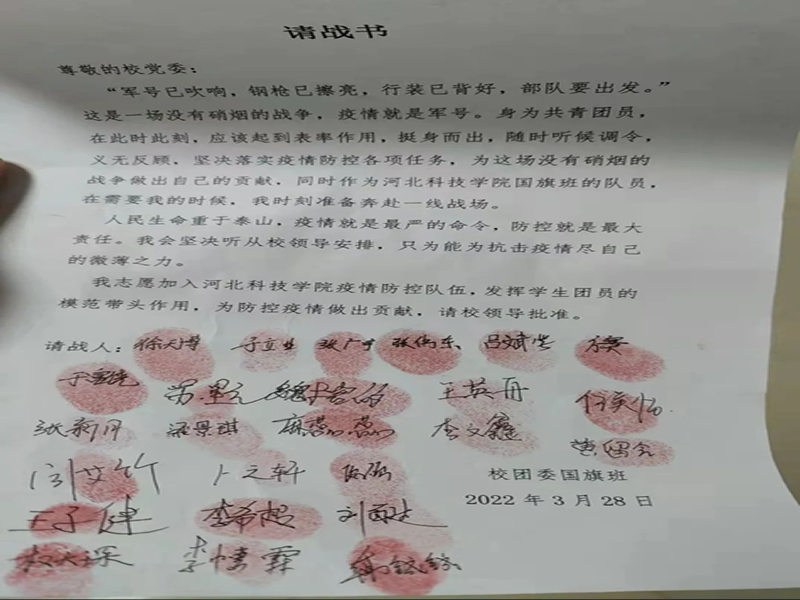 请战书
尊敬的校党委：
“军号已吹响，钢枪已擦亮，行装已背好，部队要出发。”
这是一场没有硝烟的战争，疫情就是军号。身为共青团员，
在此时此刻，应该起到表率作用，挺身而出，随时听候调令，
义无反顾，坚决落实疫情防控各项任务，为这场没有硝烟的
战争做出自己的贡献，同时作为河北科技学院国旗班的队员，
在需要我的时候，我时刻准备奔赴一线战场。
人民生命重于泰山，疫情就是最严的命令，防控就是最大
责任。我会坚决听从校领导安排，只为能为抗击疫情尽自己
的微薄之力。
我志愿加入河北科技学院疫情防控队伍，发挥学生团员的
模范带头作用，为防控疫情做出贡献，请校领导批准。
请战人：徐天博 于立业 张伟东 吕斌生
王英丹
张新月 梁景琪
闫艾竹 卜之轩
校团委国旗班
2022 年 3 月 28 日
王子健 李希超
李倩霖